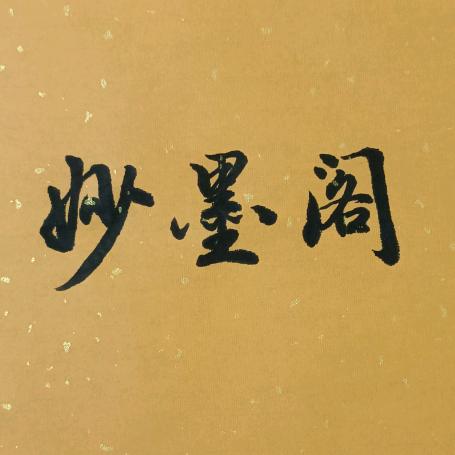 妙墨阁